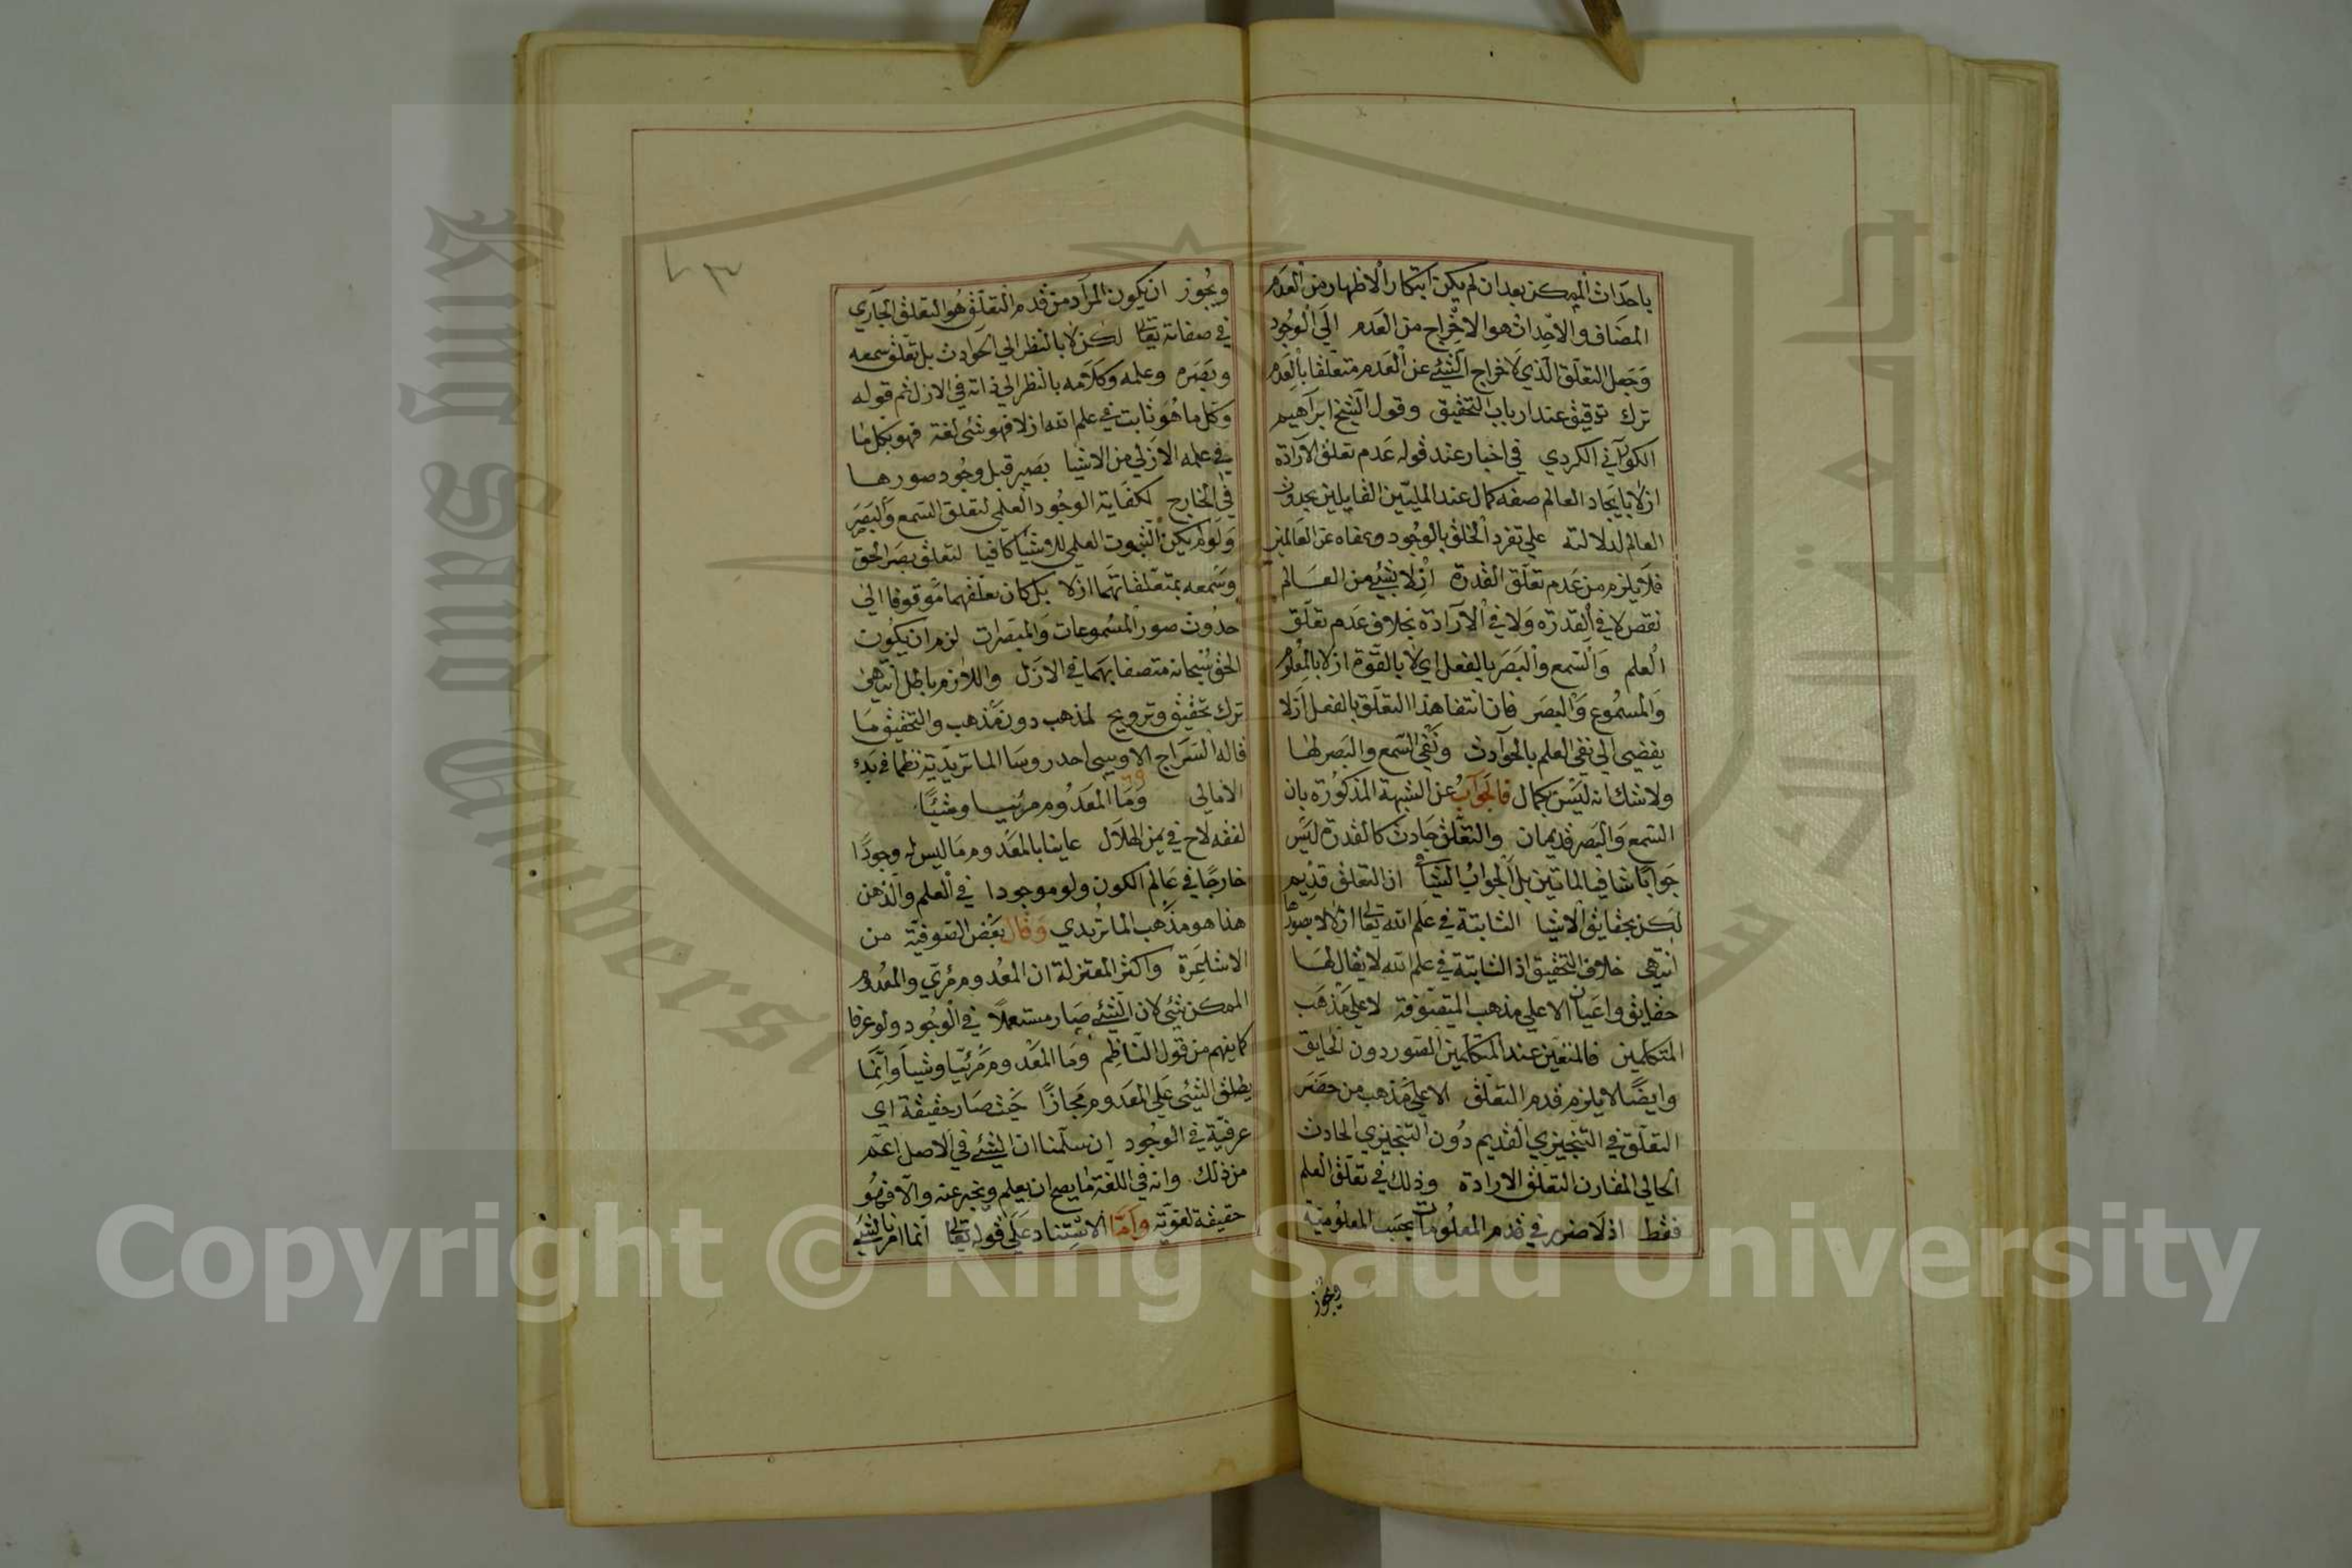 باحداث الممكن بعد ان لم يكن ابتكار الاظهار من العدم
المضاف والاحداث هو الاخراج من العدم الى الوجود
وجعل التعلق الذي لاخراج الشيء عن العدم متعلقا بالعدم
ترك توقيق عند ارباب التحقيق وقول الشيخ ابراهيم
الكوراني الكردي في اخبار عند قوله عدم تعلق الارادة
ازلا بايجاد العالم صفة كمال عند المليين القايلين بحدوث
العالم لدلالته على تفرد الخلق بالوجود وغناه عن العالمين
فلا يلزم من عدم تعلق القدرة ازلا بشيء من العالم
نقص لا في القدرة ولا في الارادة بخلاف عدم تعلق
العلم والسمع والبصر بالفعل اي لا بالقوة ازلا بالمعلوم
والمسموع والبصر فان انتفا هذا التعلق بالفعل ازلا
يفضي الى نفي العلم بالحوادث ونفي السمع والبصر لها
ولا شك انه ليس بكمال فالجواب عن الشبهة المذكورة بان
السمع والبصر قديمان والتعلق حادث كالقدرة ليس
جوابا شافيا لما تبين بل الجواب الشافي ان التعلق قديم
لكن بحقايق الاشيا الثابتة في علم الله تعالى ازلا لا بصورها
انتهى خلاف التحقيق اذ الثابتة في علم الله لا يقال لها
حقايق واعيان الا على مذهب المتصوفة لا على مذهب
المتكلمين فالمتعين عند المتكلمين الصور دون الحقايق
وايضا لا يلزم قدم التعلق الا على مذهب من حضر
التعلق في التنجيزي القديم دون التنجيزي الحادث
الحالي المقارن لتعلق الارادة وذلك في تعلق العلم
فقط اذ لا ضرر في قدم المعلومات بحسب المعلومية
ويجوز
ويجوز ان يكون المراد من قدم التعلق هو التعلق الجاري
في صفاته تعالى لكن لا بالنظر الى الحوادث بل تعلق سمعه
وبصره وعلمه وكلامه بالنظر الى ذاته في الازل ثم قوله
وكل ما هو ثابت في علم الله ازلا فهو شئ لغة فهو بكل ما
في علمه الازلي من الاشيا بصير قبل وجود صورها
في الخارج لكفاية الوجود العلمي لتعلق السمع والبصر
ولو لم يكن الثبوت العلمي للاشيا كافيا لتعلق بصر الحق
وسمعه بمتعلقاتهما ازلا بل كان تعلقهما موقوفا الى
حدوث صور المسموعات والمبصرات لزم ان يكون
الحق سبحانه متصفا بهما في الازل واللازم باطل انتهى
ترك تحقيق وترويج لمذهب دون مذهب والتحقيق ما
قاله السراج الاوسي احد روسا الماتريدية نظما في بدء
الامالي وما المعدوم مرئيا وشيئا
لفقه لاح في يمن الهلال عاينا بالمعدوم ما ليس له وجودا
خارجا في عالم الكون ولو موجودا في العلم والذهن
هذا هو مذهب الماتريدي وقال بعض الصوفية من
الاشاعرة واكثر المعتزلة ان المعدوم مرئي والمعدوم
الممكن شئ لان الشيء صار مستعملا في الوجود ولو عرفا
كما يفهم من قول الناظم وما المعدوم مرئيا وشيا وانما
يطلق الشيء على المعدوم مجازا حيث صار حقيقة اي
عرفية في الوجود ان سلمنا ان الشيء في الاصل اعم
من ذلك وانه في اللغة ما يصح ان يعلم ويخبر عنه والا فهو
حقيقة لغوية واما الاستناد على قوله تعالى انما امرنا لشيء